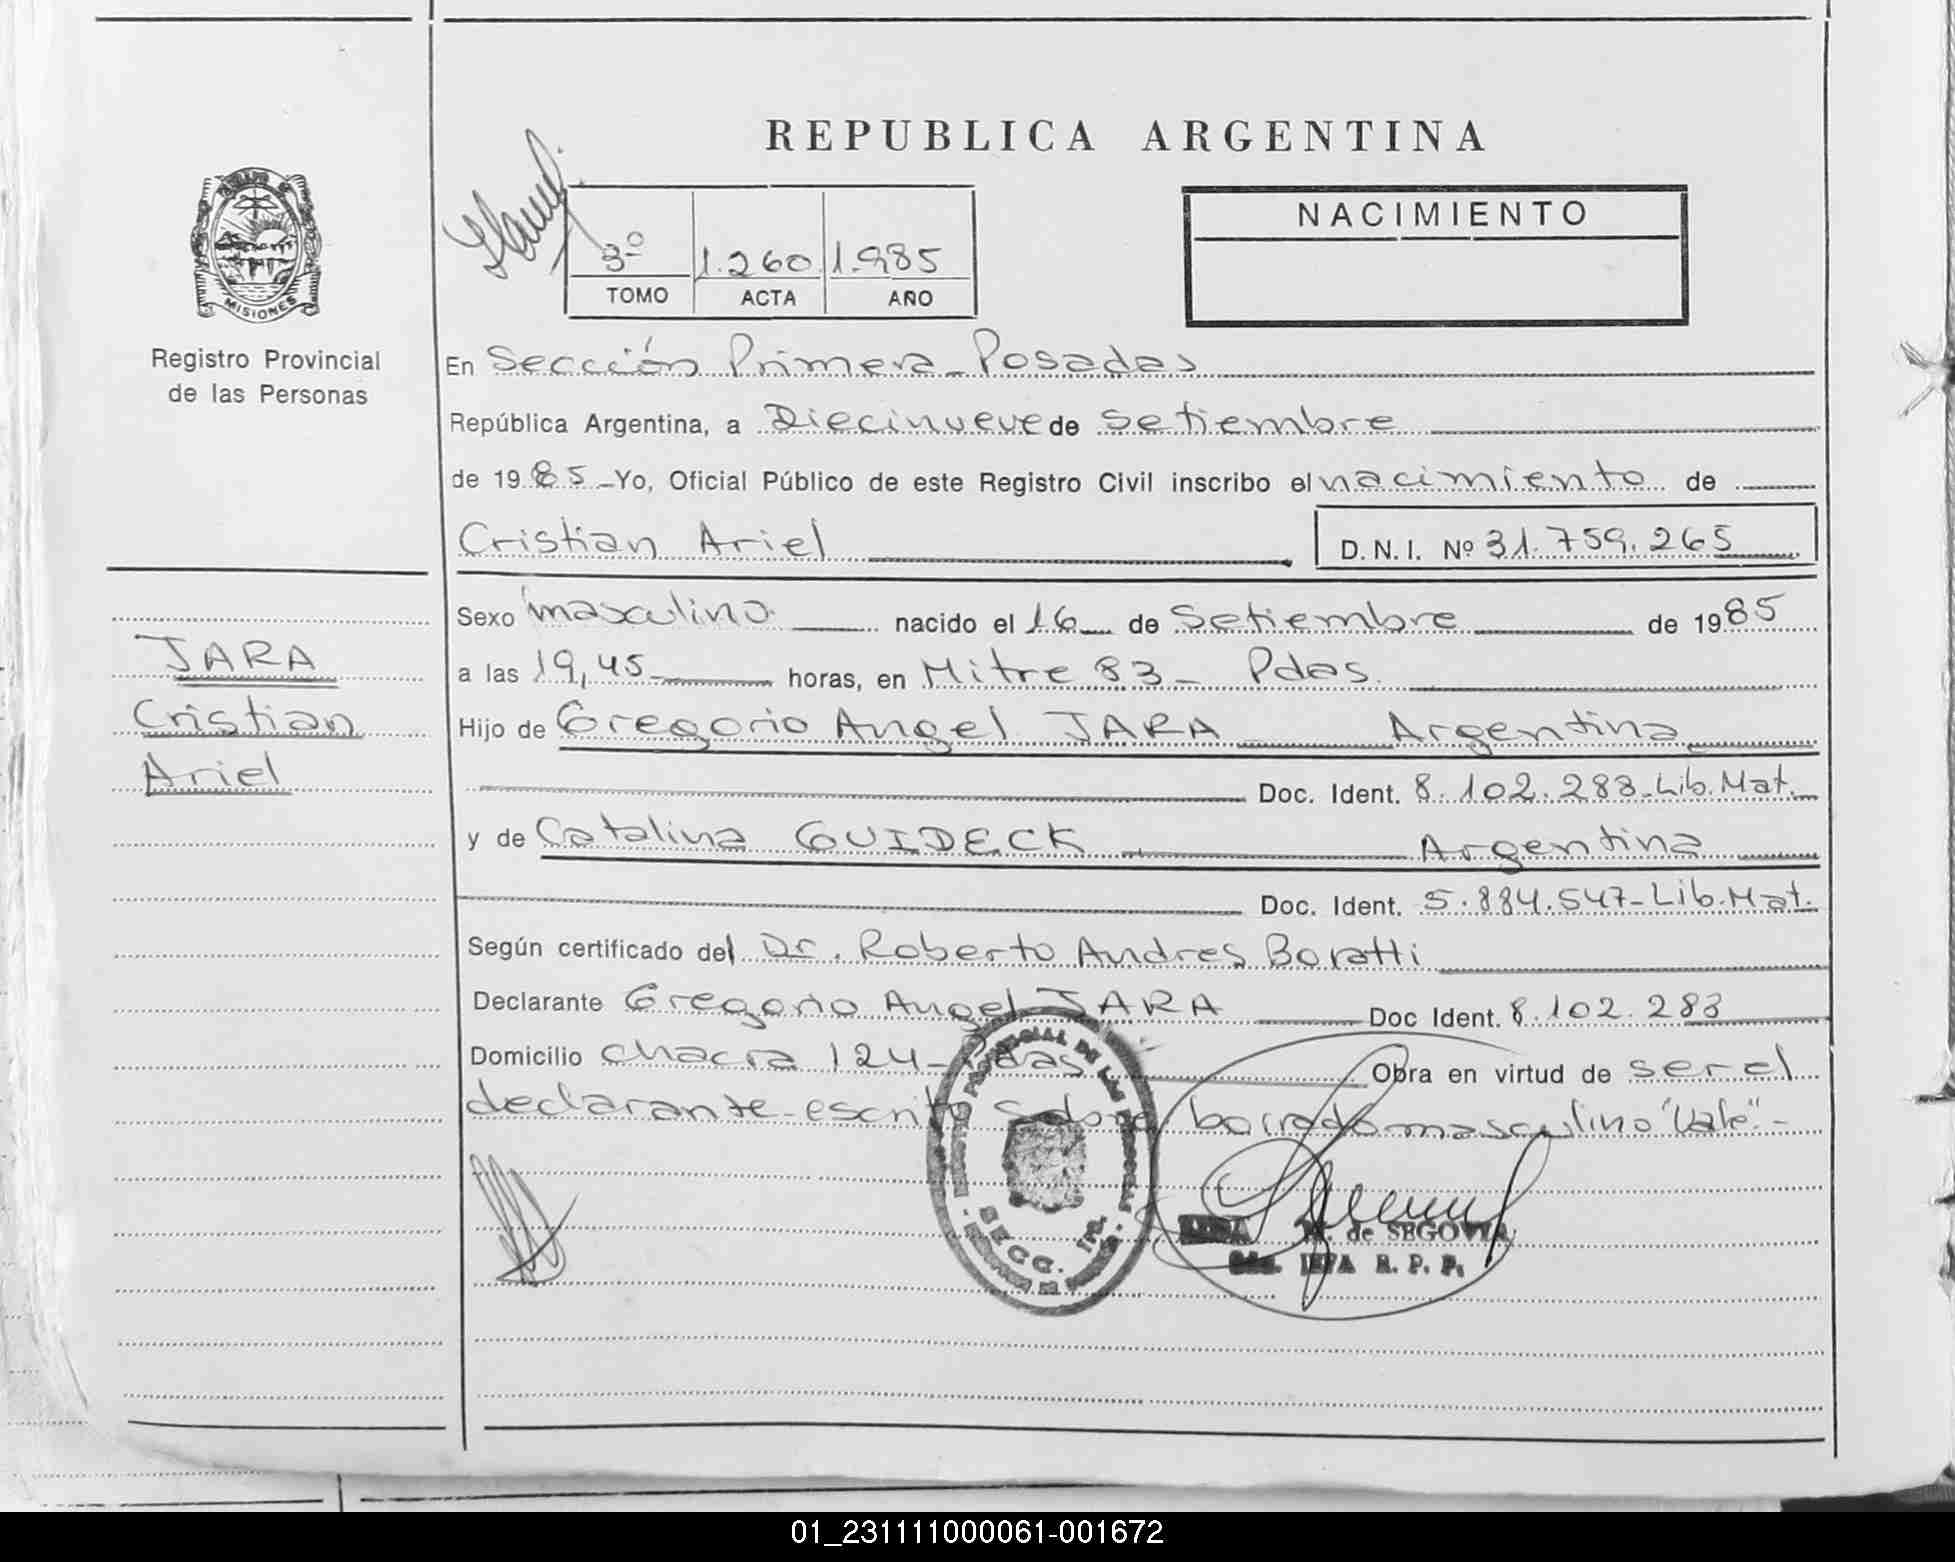 REPUBLICA ARGENTINA
MISIONES
Registro Provincial
de las Personas
3º 1.260 1.985
TOMO ACTA AÑO
NACIMIENTO
En Sección Primera - Posadas
República Argentina, a Diecinueve de Setiembre
de 1985 - Yo, Oficial Público de este Registro Civil inscribo el nacimiento de
Cristian Ariel D.N.I. Nº 31.759.265
JARA
Cristian
Ariel
Sexo masculino nacido el 16 de Setiembre de 1985
a las 19,45 horas, en Mitre 83 - Pdas.
Hijo de Gregorio Angel JARA Argentina
Doc. Ident. 8.102.283 - Lib. Mat.
y de Catalina GUIDECK Argentina
Doc. Ident. 5.884.547 - Lib. Mat.
Según certificado del Dr. Roberto Andres Boratti
Declarante Gregorio Angel JARA Doc Ident. 8.102.283
Domicilio chacra 124 - Pdas Obra en virtud de ser el
declarante - escrito sobre borrado masculino "Vale" -
PROVINCIAL DE LAS
SECC. 1ra.
M. de SEGOVIA
JEFA R. P. P.
01_231111000061-001672